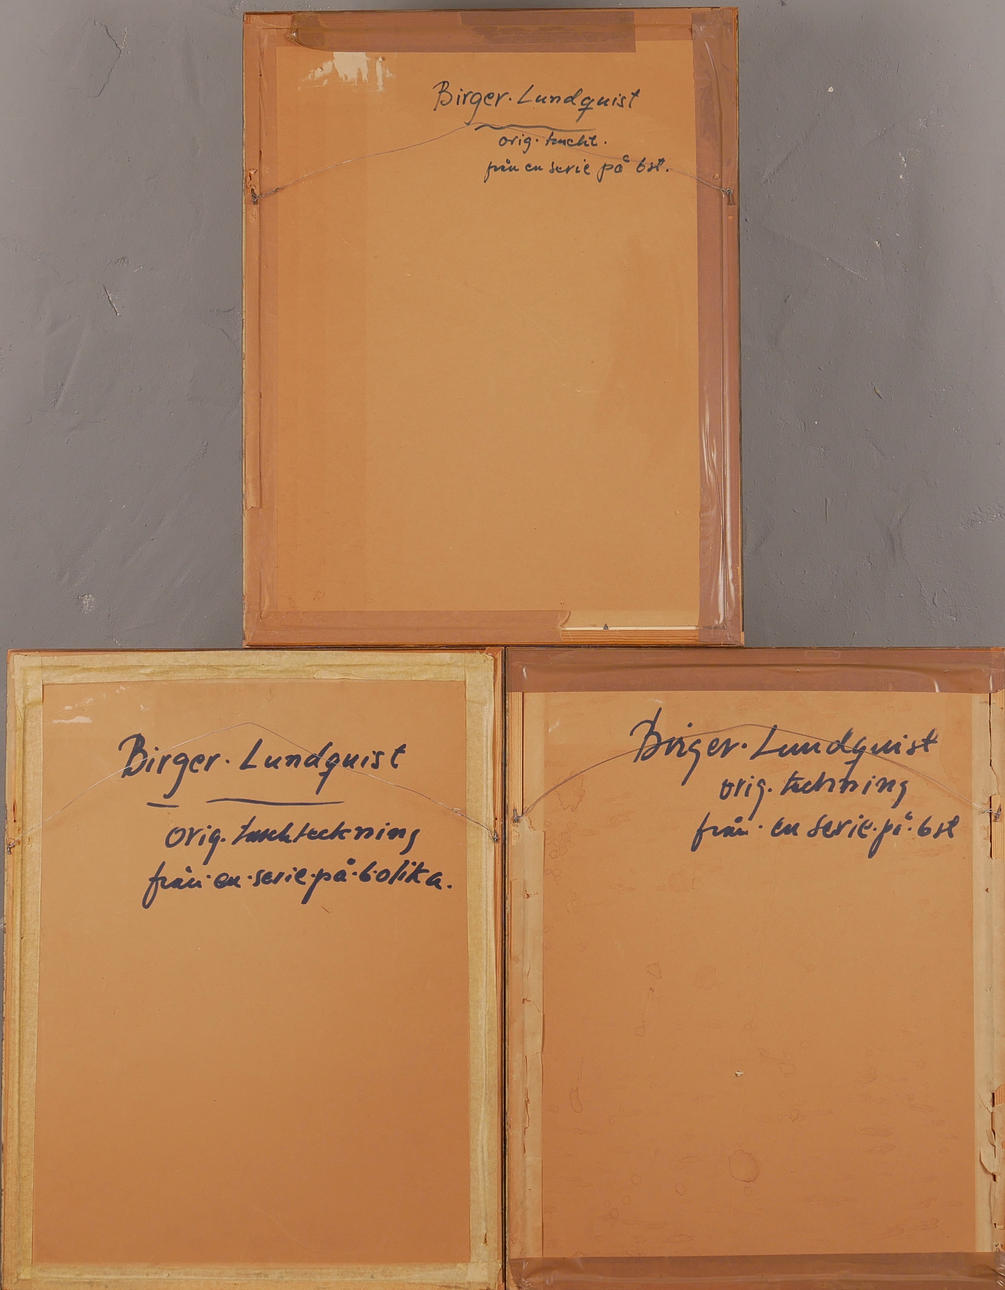 Birger. Lundquist
orig. teckn.
från en serie på 6 st.
Birger. Lundquist
orig. tuschteckning
från en serie på 6 olika.
Birger. Lundquist
orig. teckning
från en serie på 6 st